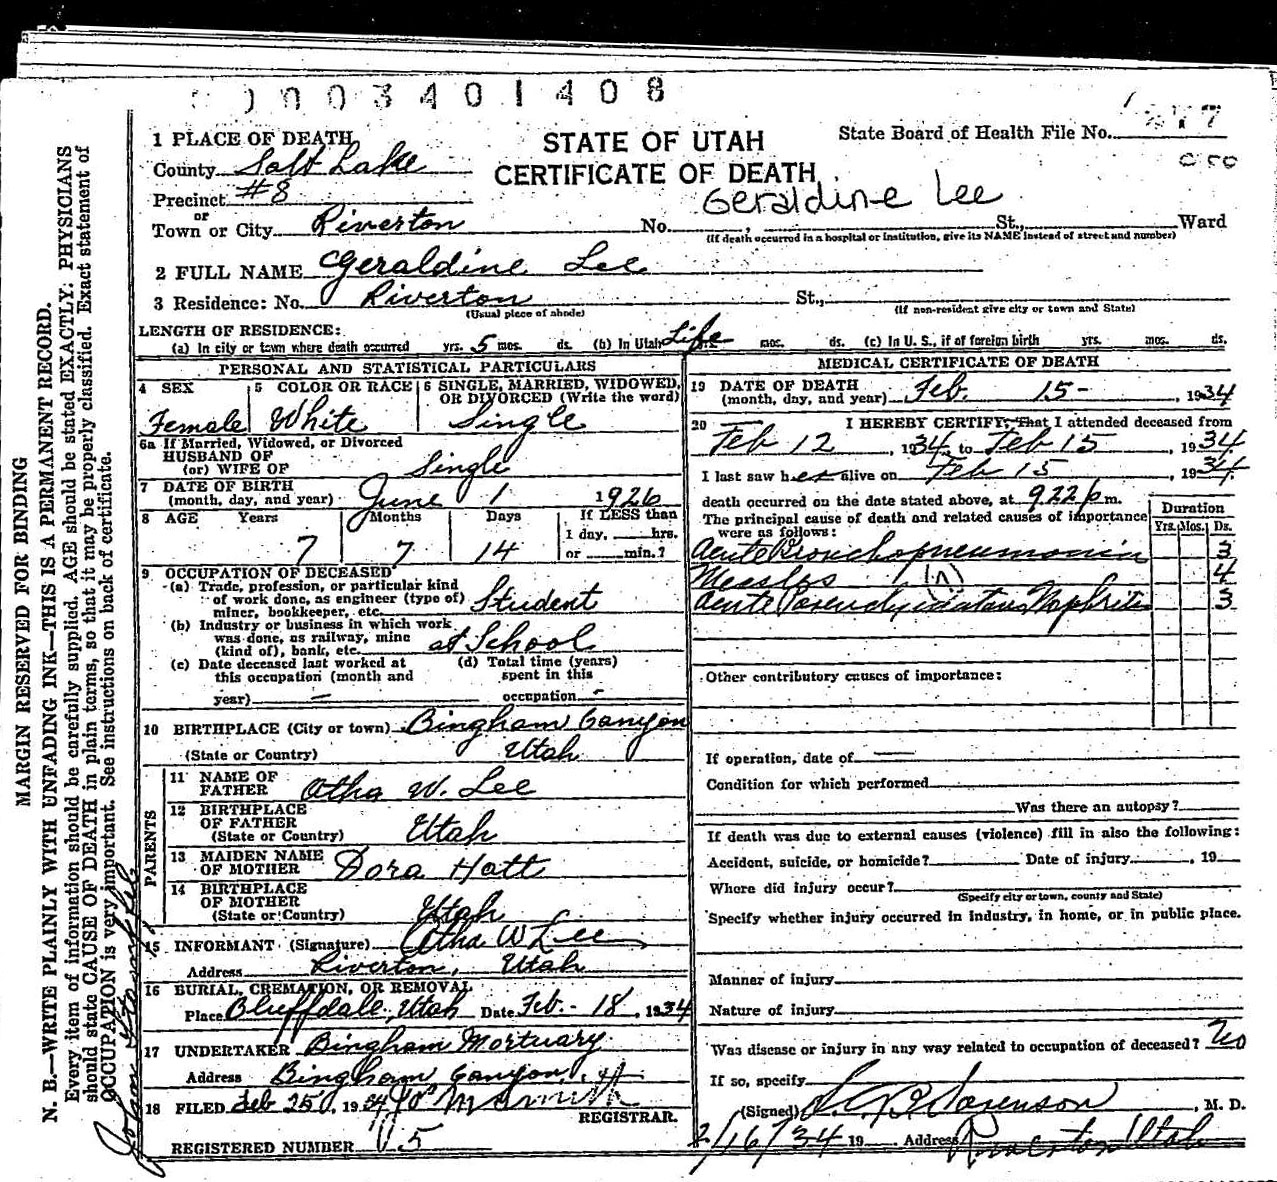 0003401408
1 PLACE OF DEATH
STATE OF UTAH
CERTIFICATE OF DEATH
State Board of Health File No.
County Salt Lake
Precinct #8
Geraldine Lee
or
Town or City Riverton No. , St., Ward
(If death occurred in a hospital or institution, give its NAME instead of street and number)
2 FULL NAME Geraldine Lee
3 Residence: No. Riverton St.,
(Usual place of abode) (If non-resident give city or town and State)
LENGTH OF RESIDENCE:
(a) In city or town where death occurred yrs. 5 mos. ds. (b) In Utah Life mos. ds. (c) In U. S., if of foreign birth yrs. mos. ds.
PERSONAL AND STATISTICAL PARTICULARS
4 SEX 5 COLOR OR RACE 6 SINGLE, MARRIED, WIDOWED,
OR DIVORCED (Write the word)
Female White Single
6a If Married, Widowed, or Divorced
HUSBAND OF
(or) WIFE OF Single
7 DATE OF BIRTH
(month, day, and year) June 1 1926
8 AGE Years Months Days If LESS than
1 day, hrs.
7 7 14 or min.?
9 OCCUPATION OF DECEASED
(a) Trade, profession, or particular kind
of work done, as engineer (type of) Student
miner, bookkeeper, etc.
(b) Industry or business in which work
was done, as railway, mine at School
(kind of), bank, etc.
(c) Date deceased last worked at (d) Total time (years)
this occupation (month and spent in this
year) — occupation -
10 BIRTHPLACE (City or town) Bingham Canyon
(State or Country) Utah
PARENTS
11 NAME OF
FATHER Otha W. Lee
12 BIRTHPLACE
OF FATHER
(State or Country) Utah
13 MAIDEN NAME
OF MOTHER Dora Hatt
14 BIRTHPLACE
OF MOTHER
(State or Country) Utah
15 INFORMANT (Signature) Otha W Lee
Address Riverton, Utah
16 BURIAL, CREMATION, OR REMOVAL
Place Bluffdale, Utah Date Feb - 18, 1934
17 UNDERTAKER Bingham Mortuary
Address Bingham Canyon,
18 FILED Feb 25, 1934
REGISTRAR.
REGISTERED NUMBER 5
MEDICAL CERTIFICATE OF DEATH
19 DATE OF DEATH
(month, day, and year) Feb. 15 - , 1934
20 I HEREBY CERTIFY, That I attended deceased from
Feb 12, 1934, to Feb 15, 1934
I last saw her alive on Feb 15, 1934.
death occurred on the date stated above, at 922 p m.
The principal cause of death and related causes of importance
were as follows:
Duration
Yrs. Mos. Ds.
Acute Bronchopneumonia 3
Measles 4
Acute Nephritis 3
Other contributory causes of importance:
If operation, date of —
Condition for which performed
Was there an autopsy?
If death was due to external causes (violence) fill in also the following:
Accident, suicide, or homicide? Date of injury , 19
Where did injury occur?
(Specify city or town, county and State)
Specify whether injury occurred in industry, in home, or in public place.
Manner of injury
Nature of injury
Was disease or injury in any way related to occupation of deceased? No
If so, specify
(Signed) Sorenson, M. D.
2/16/34 19 Address Riverton Utah
MARGIN RESERVED FOR BINDING
N. B.—WRITE PLAINLY WITH UNFADING INK—THIS IS A PERMANENT RECORD.
Every item of information should be carefully supplied. AGE should be stated EXACTLY. PHYSICIANS
should state CAUSE OF DEATH in plain terms, so that it may be properly classified. Exact statement of
OCCUPATION is very important. See instructions on back of certificate.